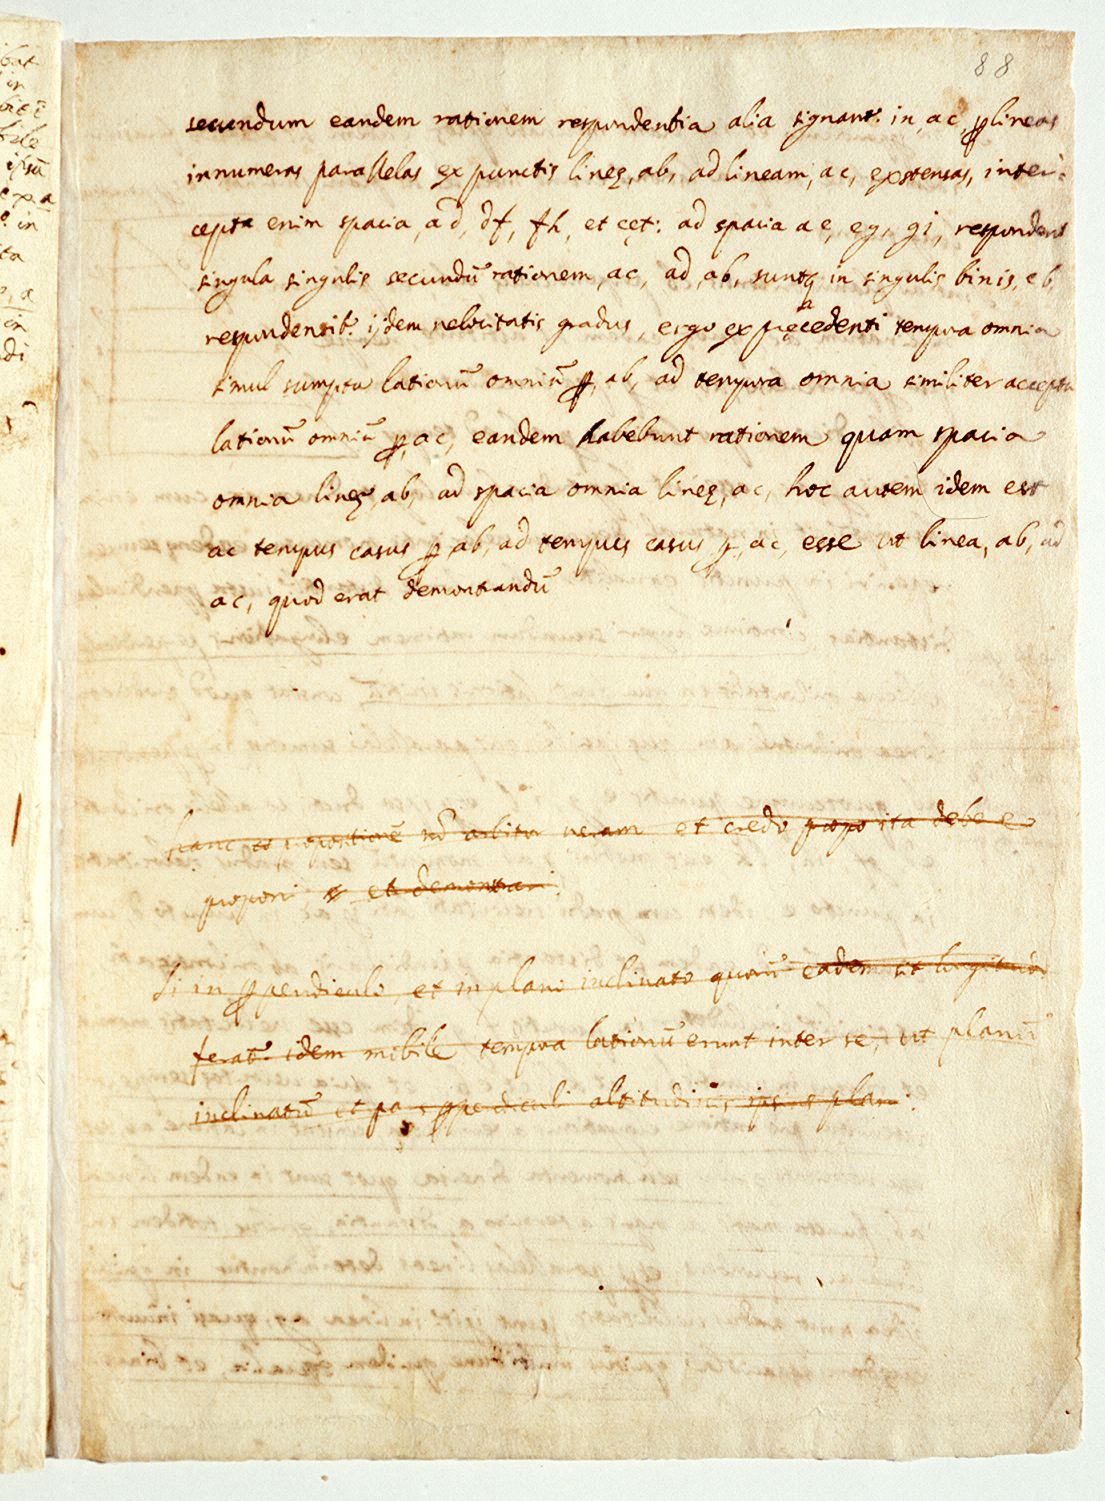 88
secundum eandem rationem respondentia alia signant: in, ac, ꝑ lineas
innumeras parallelas ex punctis lineę, ab, ad lineam, ac, extensas, inter-
cepta enim spacia, ad, df, fh, et cęt: ad spacia ae, eg, gi, respondent
singula singulis secundũ rationem, ac, ad, ab, suntq in singulis binis, eb
respondentib: ijdem velocitatis gradus, ergo ex pręcedenti tempora omnia
a
simul sumpta lationũ omniũ ꝑ, ab, ad tempora omnia similiter accepta
lationũ omniũ ꝑ, ac, eandem habebunt rationem quam spacia
omnia lineę, ab, ad spacia omnia lineę, ac, hoc autem idem est
ac tempus casus ꝑ, ab, ad tempus casus ꝑ, ac, esse ut linea, ab, ad
ac, quod erat demonstrandũ
hanc propositionẽ nõ arbitror veram et credo ita debere
proponi et demonstrari
Si in ꝑpendiculo, et in plano inclinato quorũ eadem sit longitudo
feratũ idem mobile tempora lationũ erunt inter se, ut planũ
inclinatũ et ꝑpendiculi altitudinis ipsius plani.